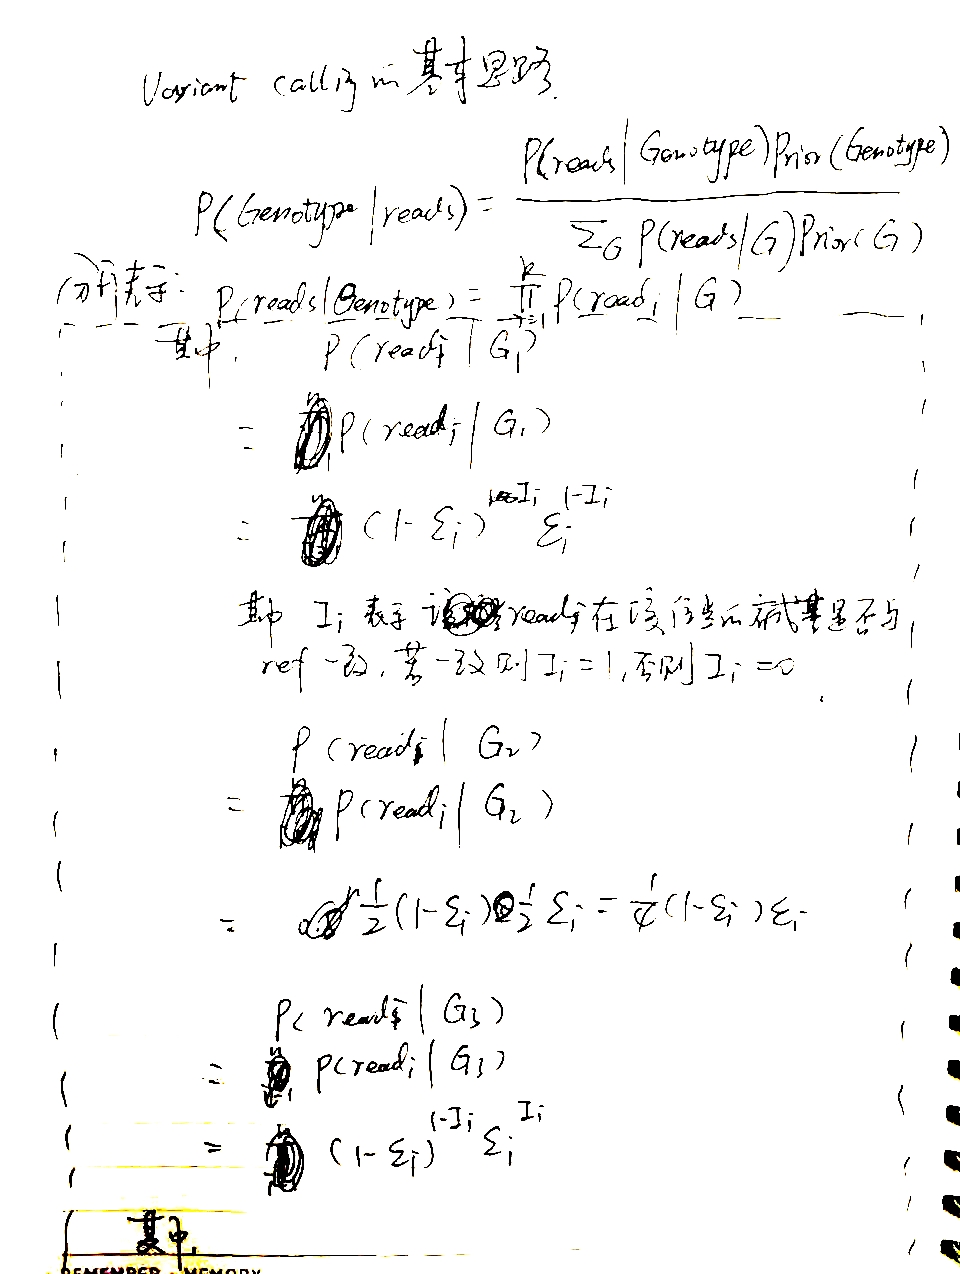 Variant calling 的基本思路
P(Genotype|reads) = P(reads|Genotype)Prior(Genotype) / Σ_G P(reads|G)Prior(G)
分开表示: P(reads|Genotype) = ∏_{i=1}^{k} P(read_i|G)
其中, P(read_i|G_1)
= P(read_i|G_1)
= (1-ε_i)^{I_i} ε_i^{1-I_i}
其中 I_i 表示该 read_i 在该位点的碱基是否与
ref 一致, 若一致则 I_i=1, 否则 I_i=0
P(read_i|G_2)
= P(read_i|G_2)
= 1/2(1-ε_i) 1/2 ε_i = 1/4(1-ε_i)ε_i
P(read_i|G_3)
= P(read_i|G_3)
= (1-ε_i)^{1-I_i} ε_i^{I_i}
其中,
REMEMBER · MEMORY